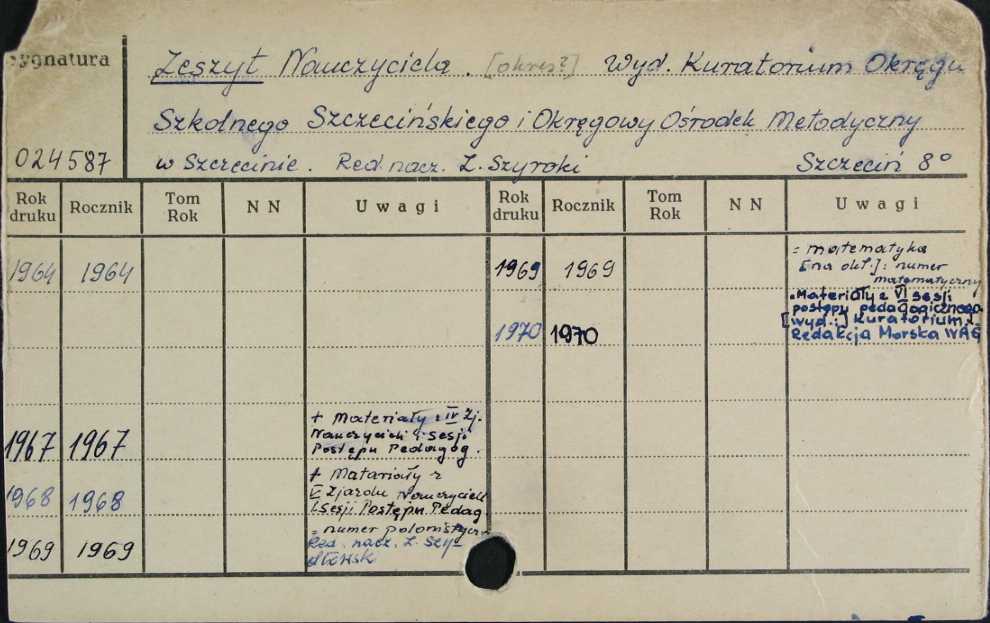 ygnatura
Zeszyt Nauczyciela. [okres?] Wyd. Kuratorium Okręgu
Szkolnego Szczecińskiego i Okręgowy Ośrodek Metodyczny
024587 w Szczecinie. Red. nacz. Z. Szyroki Szczecin 8°
Rok druku Rocznik Tom Rok N N Uwagi Rok druku Rocznik Tom Rok N N Uwagi
1964 1964
1967 1967 + Materiały z IV Zj.
Nauczycieli i sesji
Postępu Pedagog.
1968 1968 + Matariały z
V Zjazdu Nauczycieli
i sesji Postępu Pedag.
1969 1969 = numer polonistyczn
Red. nacz. Z.
1969 1969 = matematyka
[na okł.]: numer
matematyczny
1970 1970 . Materiały z VI sesji
postępu pedagogicznego
[wyd.:] Kuratorium
Redakcja Morska WAG